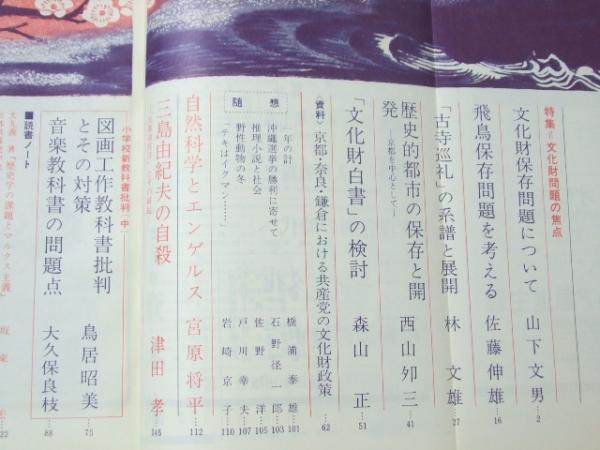 特集＝文化財問題の焦点
文化財保存問題について 山下文男…2
飛鳥保存問題を考える 佐藤伸雄…16
「古寺巡礼」の系譜と展開 林文雄…27
歴史的都市の保存と開発―京都を中心として― 西山夘三…41
「文化財白書」の検討 森山正…51
〈資料〉京都・奈良・鎌倉における共産党の文化財政策…62
随想
一年の計 橋浦泰雄…101
沖縄選挙の勝利に寄せて 石野径一郎…103
推理小説と社会 佐野洋…105
野性動物の冬 戸川幸夫…107
「テキはイクマン……」 岩崎京子…110
自然科学とエンゲルス 宮原将平…112
三島由紀夫の自殺 津田孝…145
小学校新教科書批判〈中〉
図画工作教科書批判とその対策 鳥居昭美…75
音楽教科書の問題点 大久保良枝…88
■読書ノート
『歴史学の課題とマルクス主義』
22